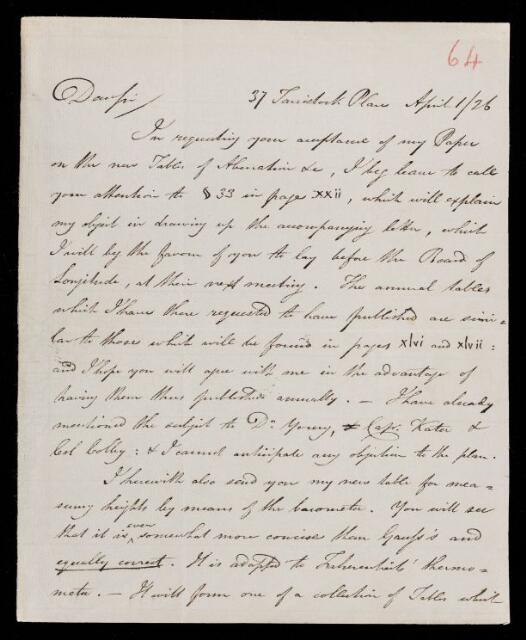 64
Dear Sir / 37 Tavistock Place April 1/26
In requesting your acceptance of my Paper
on the new Tables of Aberration &c, I beg leave to call
your attention to § 33 in page xxii, which will explain
my object in drawing up the accompanying letter, which
I will beg the favour of you to lay before the Board of
Longitude, at their next meeting. The annual tables
which I have there requested to have published are simi=
lar to those which will be found in pages xlvi and xlvii:
and I hope you will agree with me in the advantage of
having them thus published annually. — I have already
mentioned the subject to Dr Young, Capt. Kater &
Col Colby: & I cannot anticipate any objection to the plan.
I herewith also send you my new table for mea=
suring heights by means of the barometer. You will see
that it is even somewhat more concise than Gauss's and
equally correct. It is adapted to Fahrenheit's thermo=
meter. — It will form one of a collection of Tables which